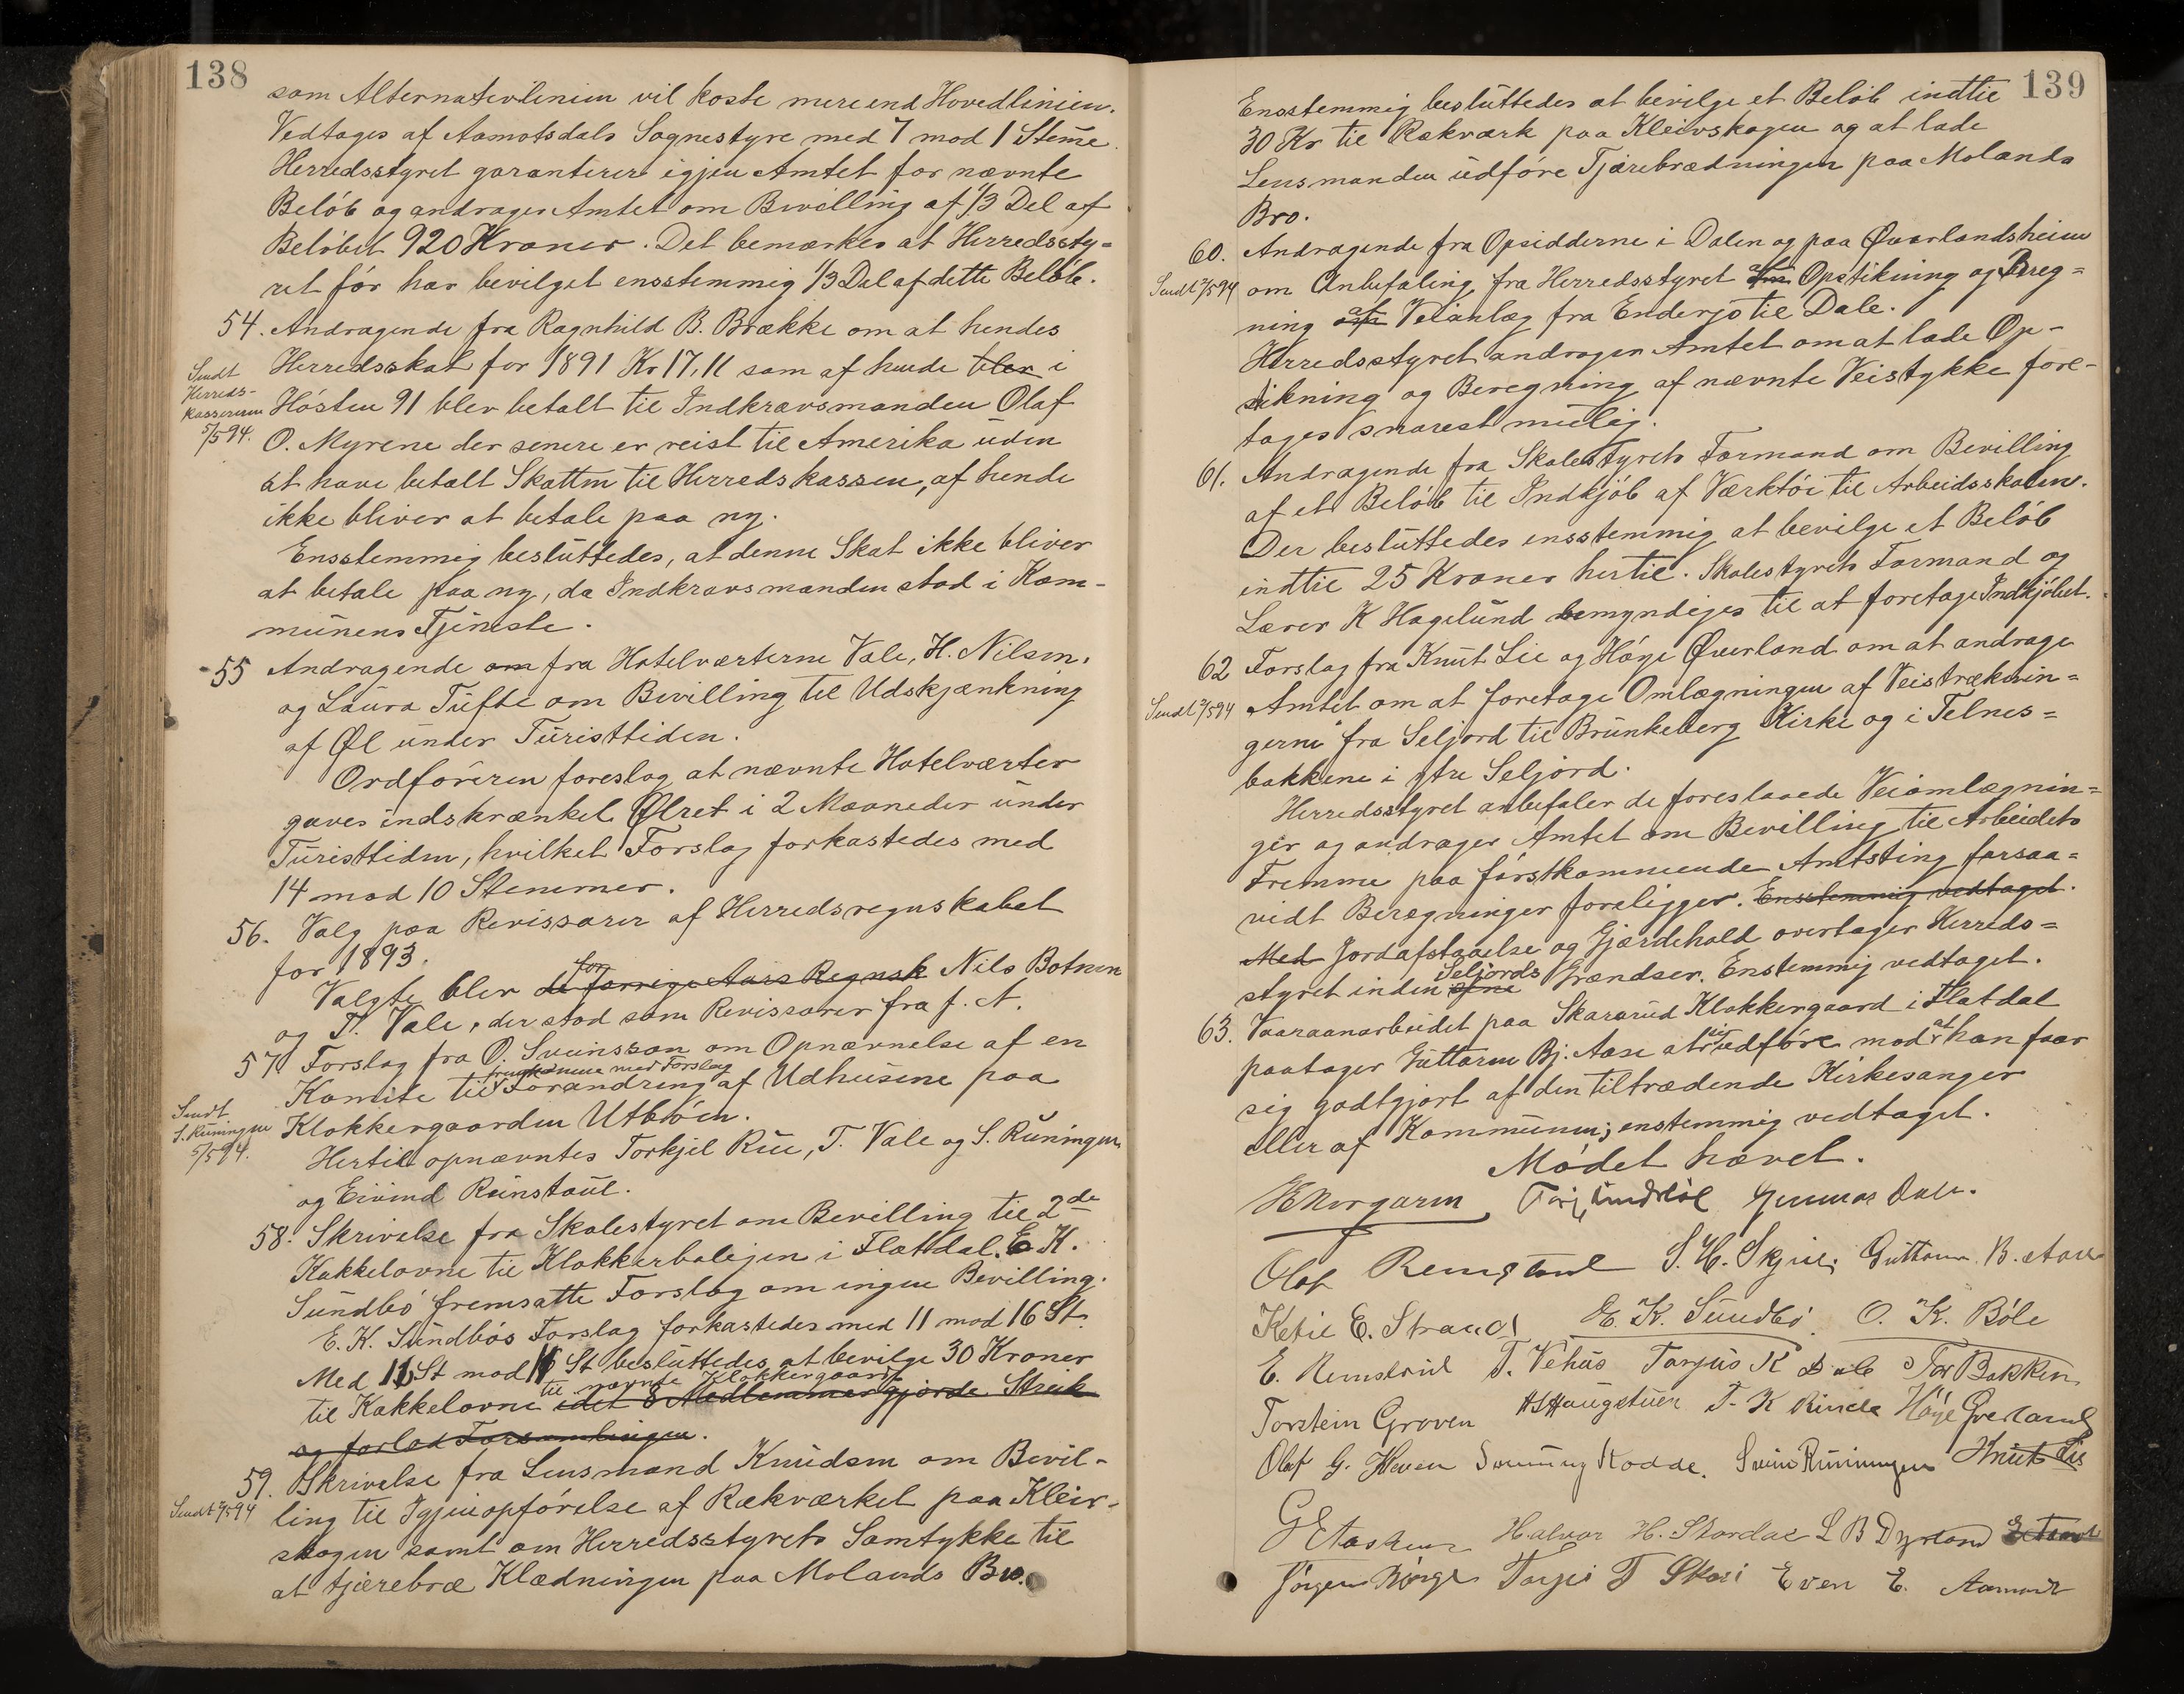 138
som Alternativlinien vil koste mere end Hovedlinien.
Vedtages af Aamotsdals Sognestyre med 7 mod 1 Stemme.
Herredsstyret garanterer igjen Amtet for nævnte
Beløb og andrager Amtet om Bevilling af 1/3 Del af
Beløbet 920 Kroner. Det bemærkes at Herredssty=
ret før har bevilget ensstemmig 1/3 Del af dette Beløb.
54. Andragende fra Ragnhild B. Brække om at hendes
Herredsskat for 1891 Kr 17,11 som af hende blev i
Sendt
Herreds-
kassereren
5/5 94.
Høsten 91 blev betalt til Indkrævsmanden Olaf
O. Myrene der senere er reist til Amerika uden
at have betalt Skatten til Herredskassen, af hende
ikke bliver at betale paa ny.
Ensstemmig besluttedes, at denne Skat ikke bliver
at betale paa ny, da Indkravsmanden stod i Kom-
munens Tjeneste.
55 Andragende om fra Hotelværterne Vale, H. Nilsen.
og Laura Tufte om Bevilling til Udskjænkning
af Øl under Turisttiden.
Ordføreren foreslog at nævnte Hotelværter
gaves indskrænket Ølret i 2 Maaneder under
Turisttiden, hvilket Forslag forkastedes med
14 mod 10 Stemmer.
56. Valg paa Revissorer af Herredsregnskabet
for 1893.
Valgte blev de for forrige Aars Regnsk Nils Botnen
og T. Vale, der stod som Revissorer fra f. A.
57 Forslag fra O. Sveinsson om Opnævnelse af en
Komite til fremkomme med Forslag Forandring af Udhusene paa
Sendt
S. Runingen
5/5 94.
Klokkergaarden Utbøen.
Hertil opnævntes Torkjel Rue, T. Vale og S. Runingen
og Eivind Runstaul.
58. Skrivelse fra Skolestyret om Bevilling til 2de
Kakkelovne til Klokkerboligen i Flatdal. E. K.
Sundbø fremsatte Forslag om ingen Bevilling.
E. K. Sundbøs Forslag forkastedes med 11 mod 16 St.
Med 16 St mod 11 St besluttedes at bevilge 30 Kroner
til Kakkelovne til nævnte Klokkergaard idet 8 Medlemmer gjorde Streik
og forlod Forsamlingen.
59. Skrivelse fra Lensmand Knudsen om Bevil-
Sendt 7/5 94
ling til Igjenopførelse af Rækværket paa Kleiv-
skogen samt om Herredsstyrets Samtykke til
at tjærebræ Klædningen paa Molands Bro.
139
Ensstemmig besluttedes at bevilge et Beløb indtil
30 Kr til Rækværk paa Kleivskogen og at lade
Lensmanden udføre Tjærebrædningen paa Molands
Bro.
60. Andragende fra Opsidderne i Dalen og paa Øverlandsheien
Sendt 7/5 94
om Anbefaling fra Herredsstyret af Opstikning og Bereg=
ning af Veianlæg fra Enderjø til Dale.
Herredsstyret andrager Amtet om at lade Op-
stikning og Beregning af nævnte Veistykke fore-
tages snarest mulig.
61. Andragende fra Skolestyrets Formand om Bevilling
af et Beløb til Indkjøb af Værktøi til Arbeidsskolen.
Der besluttedes ensstemmig at bevilge et Beløb
indtil 25 Kroner hertil. Skolestyrets Formand og
Lærer K Hagelund bemyndiges til at foretage Indkjøbet.
62 Forslag fra Knut Lie og Høye Øverland om at andrage
Sendt 7/5 94
Amtet om at foretage Omlægningen af Veistræknin=
gerne fra Seljord til Brunkeberg Kirke og i Telnes=
bakkene i ytre Seljord.
Herredsstyret anbefaler de foreslaaede Veiomlægnin=
ger og andrager Amtet om Bevilling til Arbeidets
Fremme paa førstkommende Amtsting forsaa=
vidt Beregninger foreligger. Ensstemmig vedtaget.
Med Jordafstaaelse og Gjærdehold overtager Herreds=
styret inden Seljords Grændser. Enstemmig vedtaget.
63. Vaaraanarbeidet paa Skararud Klokkergaard i Flatdal
paatager Guttorm Bj. Aase at udføre mod at han faar
sig godtgjort af den tiltrædende Kirkesanger
eller af Kommunen; enstemmig vedtaget.
Mødet hævet.
Gunnar Dale.
Olaf S. H. Skjrei. Guttorm B. Aase
Ketil E. Strand E. K. Sundbø. O. K. Bøle
E. Remstoul T. Vehus Tarjus K Dale Tor Bakken
Torstein Groven HS Haugstuen T. K Rinde Høye Øverland
Olaf G. Heven Svein Runingen Knut Lie
Halvor H. Skordal L B Dyrland
Jørgen Børge Torjei T Skori Even E. Aamodt